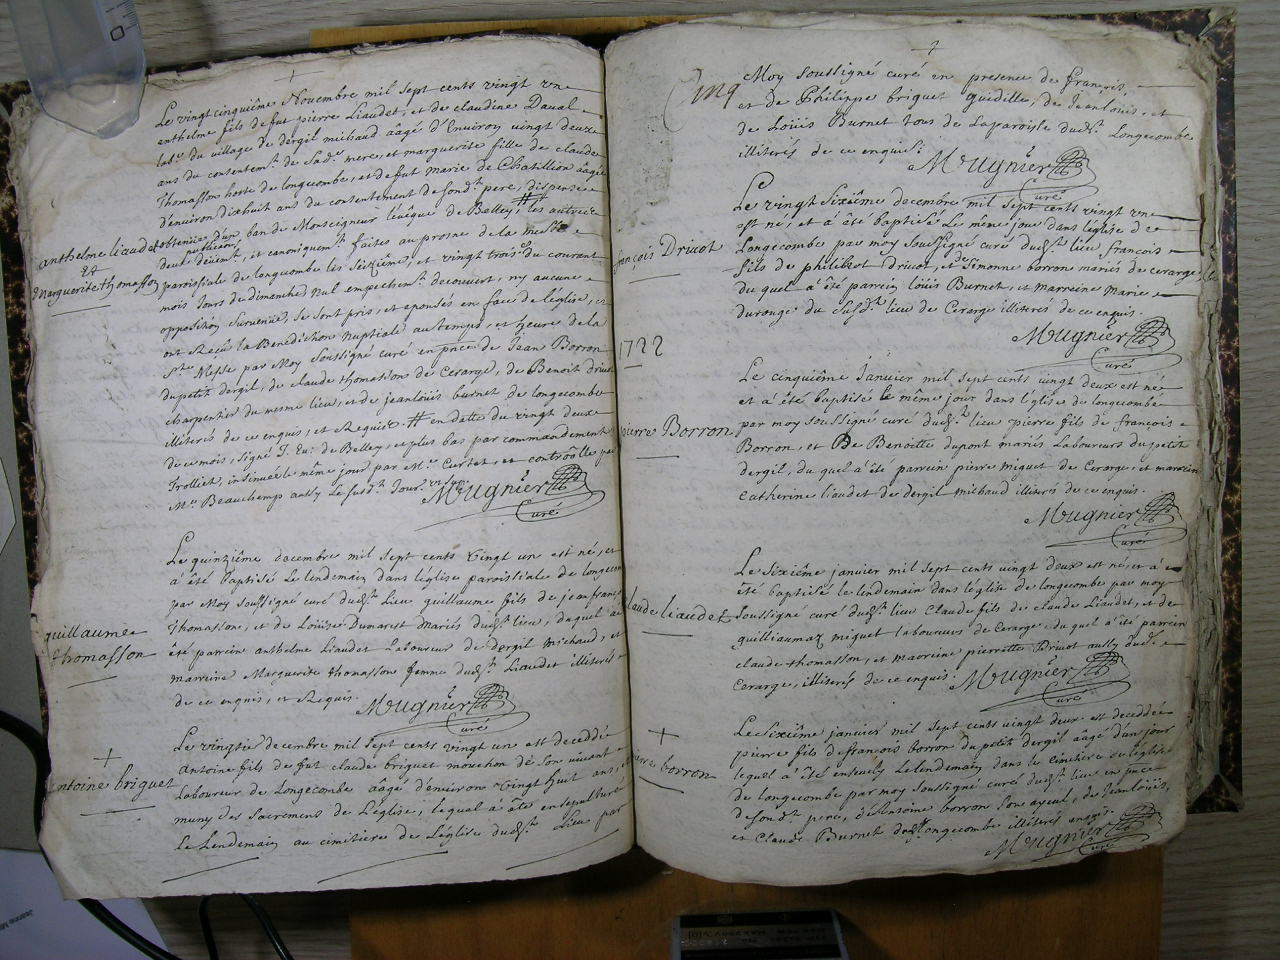 Le vingt cinquiême Novembre mil sept cents vingt vn
anthelme fils de fut pierre Liaudet, et de claudine Daval
lab.r du village de dergil michaud aagé d'Environ vingt deux
ans du consentem.t de sad.e mere, et marguerite fille de claude
Thomasson hoste de longecombe, et de fut marie de Chatillion aagée
d'environ dixhuit ans du consentement de sond.t pere, dispense
anthelme liaudet
et
Marguerite thomasson
obtenüe d'un ban de Monseigneur levêque de Belley, # les autres
deux düement, et canoniquem.t faites au prosne de la messe
paroissiale de longecombe les seiziême, et vingt trois.e du courant
mois jours de dimanche nul empechem.t decouvert, ny aucune
opposition survenüe, se sont pris, et epousés en face de l'église, et
ont Reçu la Benediction Nuptiale au temps, et heure de la
S.te Messe par Moy soussigné curé en pñce de Jean Borron
du petit dergil, de claude thomasson de Cerarge, de Benoit druot
charpentier du mesme lieu, et de jeanloüis burnet de longecombe
illiterés de ce enquis, et Requis. # en datte du vingt deux
de ce mois, signé J. Ev: de Belley, et plus bas par commandement
Trolliet, insinuée le même jour par M.r Curtet, et controolle par
M.r Beauchamp aussy le susd.t jour.
Mugnier
Curé
Le quinziême decembre mil sept cents vingt un est né, et
a été baptisé Le lendemain dans l'église paroissiale de longecombe
par Moy soussigné curé dud.t Lieu guillaume fils de jean françois
Thomasson, et de Loüise Dumarest Mariés dud.t lieu, duquel a
guillaume
thomasson
été parrein anthelme Liaudet Laboureur de dergil michaud, et
marreine Marguerite thomasson femme dud.t Liaudet illiterés
de ce enquis, et Requis.
Mugnier
Curé
Le vingtie decembre mil sept cents vingt un est decedé
antoine briquet
Antoine fils de fut claude briquet mouchon de son vivant
Laboureur de Longecombe aâgé d'environ vingt huit ans,
muny des sacremens de L'église, lequel a été ensepulturé
le Lendemain au cimitiere de L'église dud.t Lieu par
Cinq
Moy soussigné curé en presence de françois,
et de Philippe briquet guidille, de Jeanloüis, et
de Loüis Burnet tous de la paroisse dud.t Longecombe
illiterés de ce enquis.
Mugnier
Curé
Le vingt sixiême decembre mil sept cents vingt vn
est né, et a été baptisé Le même jour dans l'église de
françois Druot
Longecombe par moy soussigné curé dud.t lieu françois
fils de philibert Druot, et de Simonne borron mariés de cerarge
du quel a été parrein Loüis Burnet, et marreine Marie
durouge du susd.t lieu de Cerarge illiterés de ce enquis.
Mugnier
Curé
1722
Le cinquiême Janvier mil sept cents vingt deux est né
et a été baptisé le même jour dans l'église de longecombe
pierre Borron
par moy soussigné curé dud.t lieu pierre fils de françois
Borron, et De Benoitte dupont mariés Laboureurs du petit
dergil, du quel a été parrein pierre miguet de Cerarge, et marreine
Catherine liaudet de dergil michaud illiterés de ce enquis.
Mugnier
Curé
Le sixiême janvier mil sept cents vingt deux est né, et a
été baptisé le lendemain dans l'église de longecombe par moy
claude liaudet
soussigné curé dud.t lieu Claude fils de claude Liaudet, et de
guilliaumaz miguet laboureurs de Cerarge, du quel a été parrein
claude thomasson, et marreine pierrette Druot aussy dud.t
Cerarge, illiterés de ce enquis.
Mugnier
Curé
Le sixiême janvier mil sept cents vingt deux est decedé
pierre borron
pierre fils de françois borron du petit dergil aagé d'un jour
lequel a été ensevely le lendemain dans le cimitiere de l'église
de longecombe par moy soussigné curé dud.t lieu en pñce
de sond.t pere, d'Antoine borron son ayeul, de Jeanloüis,
et Claude Burnet dud.t longecombe illiterés enquis.
Mugnier
Curé